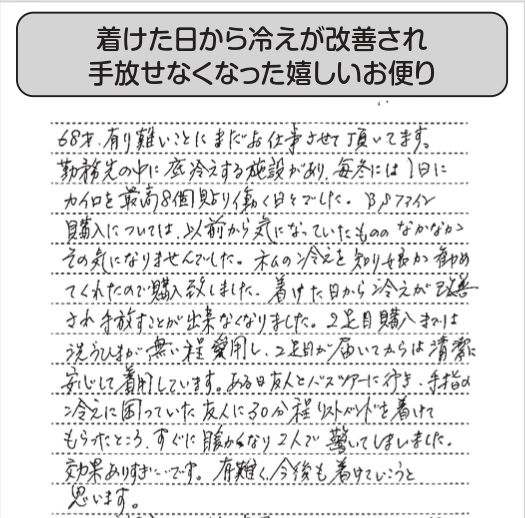 着けた日から冷えが改善され
手放せなくなった嬉しいお便り
68才、有り難いことにまだお仕事させて頂いてます。
勤務先の中に底冷えする施設があり、毎冬には1日に
カイロを最高8個貼り働く日々でした。BSファイン
購入については、以前から気になっていたもののなかなか
その気になりませんでした。私の冷えを知り妹が勧め
てくれたので購入致しました。着けた日から冷えが改善
され手放すことが出来なくなりました。2足目購入までは
洗うひまが無い程愛用し、2足目が届いてからは清潔に
安心して着用しています。ある日友人とバスツアーに行き、手指の
冷えに困っていた友人に30分程リストバンドを着けて
もらったところ、すぐに暖かくなり2人で驚いてしまいました。
効果ありすぎ…です。有難く、今後も着けていこうと
思います。